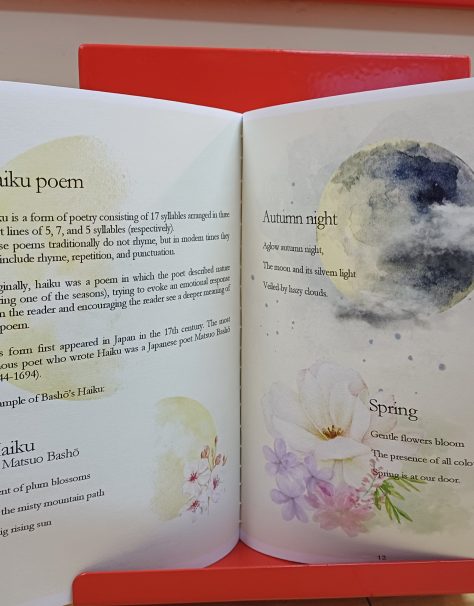 aiku poem
ku is a form of poetry consisting of 17 syllables arranged in three
t lines of 5, 7, and 5 syllables (respectively).
se poems traditionally do not rhyme, but in modern times they
include rhyme, repetition, and punctuation.
ginally, haiku was a poem in which the poet described nature
ring one of the seasons), trying to evoke an emotional response
n the reader and encouraging the reader see a deeper meaning of
poem.
s form first appeared in Japan in the 17th century. The most
ous poet who wrote Haiku was a Japanese poet Matsuo Bashō
44-1694).
ample of Bashō's Haiku:
Haiku
Matsuo Bashō
ent of plum blossoms
the misty mountain path
ig rising sun
Autumn night
Aglow autumn night,
The moon and its silvern light
Veiled by hazy clouds.
Spring
Gentle flowers bloom
The presence of all colo
Spring is at our door.
12